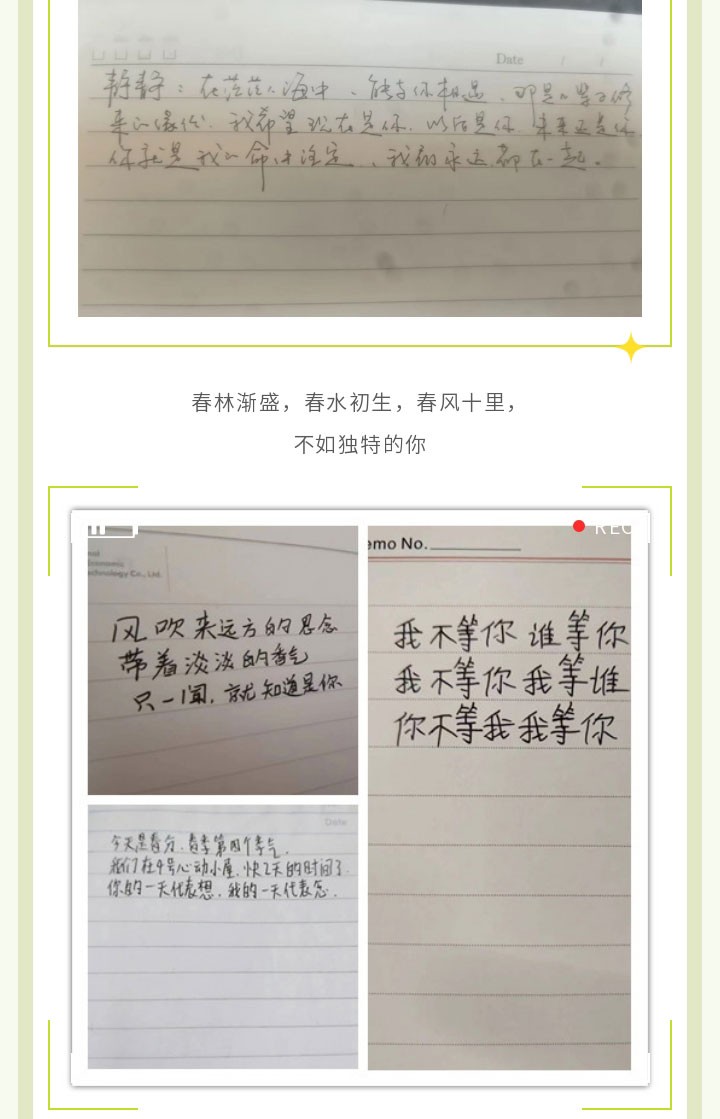 Date / /
静静：在茫茫人海中、能与你相遇、那是八辈子修
来的缘份、我希望现在是你、以后是你、未来还是你
你就是我的命中注定、我们永远都在一起。
春林渐盛，春水初生，春风十里，
不如独特的你
REC
Technology Co., Ltd.
风吹来远方的思念
带着淡淡的香气
只一闻，就知道是你
emo No.
我不等你 谁等你
我不等你 我等谁
你不等我 我等你
Date
今天是春分，春季第四个季气，
我们在4号心动小屋，快2天的时间了，
你的一天代表想，我的一天代表念．